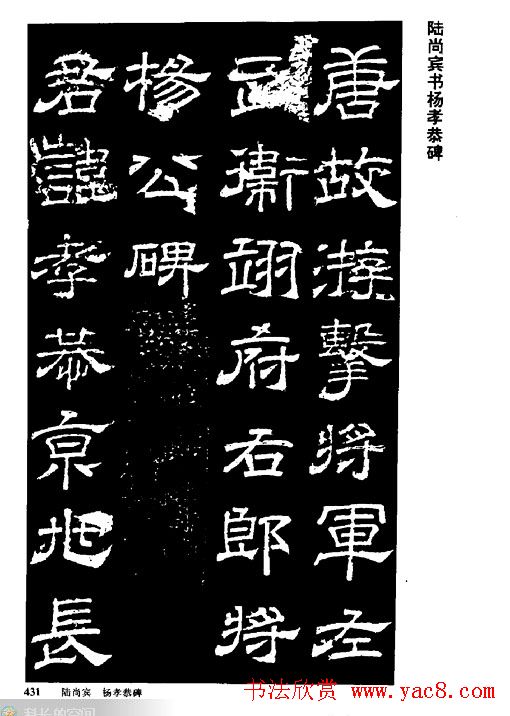 陆尚宾书杨孝恭碑
唐故游擊將軍左
武衛翊府右郎將
楊公碑
君諱孝恭京兆長
431 陆尚宾 杨孝恭碑
书法欣赏 www.yac8.com
科长的空间